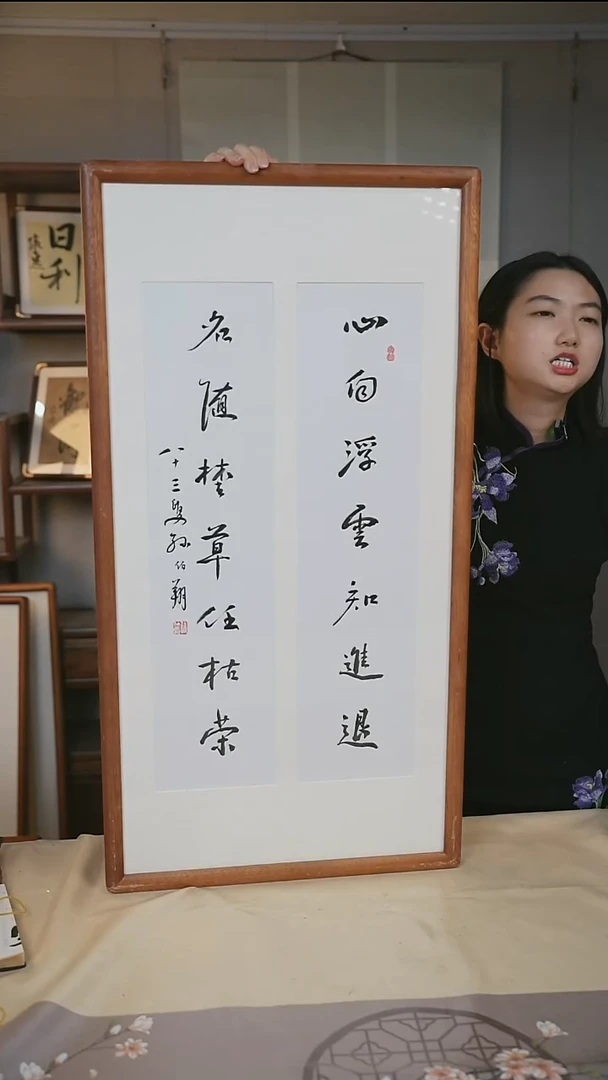 心向浮雲知進退
名随埜草任枯荣
八十三叟孫伯翔
日利